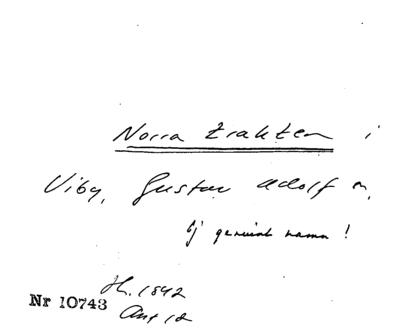 Norra trakten i
Viby, Gustav Adolf sn.
Ej genuint namn!
H. 1842
Nr 10743
Aug 12